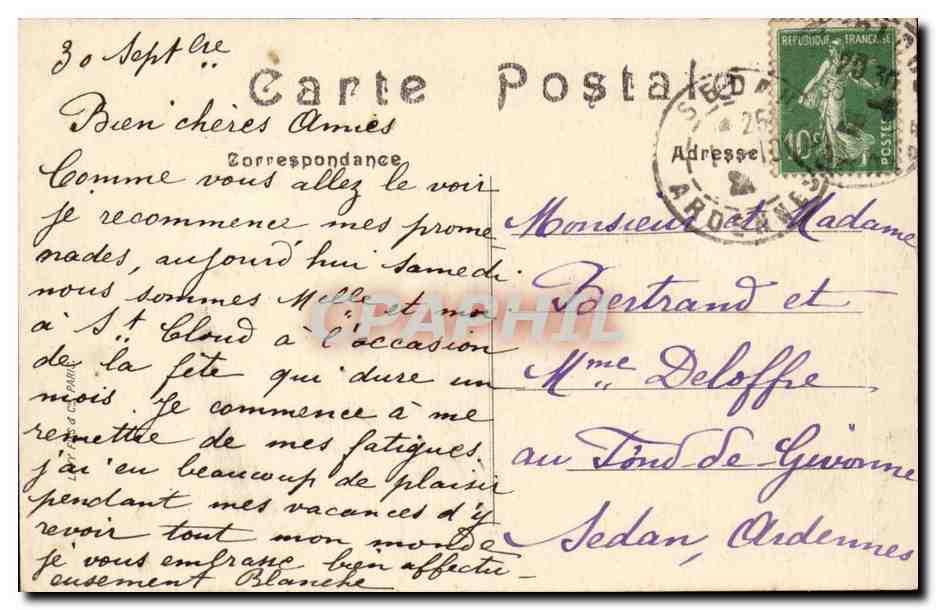 30 Septbre
Carte Postale
Bien chères Amies
Correspondance
Comme vous allez le voir
je recommence mes prome
nades, aujourd'hui samedi
nous sommes Melle et moi
à St Cloud à l'occasion
de la fête qui dure un
mois. Je commence à me
remettre de mes fatigues.
j'ai eu beaucoup de plaisir
pendant mes vacances d'y
revoir tout mon monde
je vous embrasse bien affectu-
eusement Blanche
REPUBLIQUE FRANÇAISE
10c
POSTES
SEDAN
ARDENNES
Adresse
Monsieur et Madame
Bertrand et
Mme Deloffre
au Fond-de-Givonne
Sedan, Ardennes
CPAPHIL
PARIS